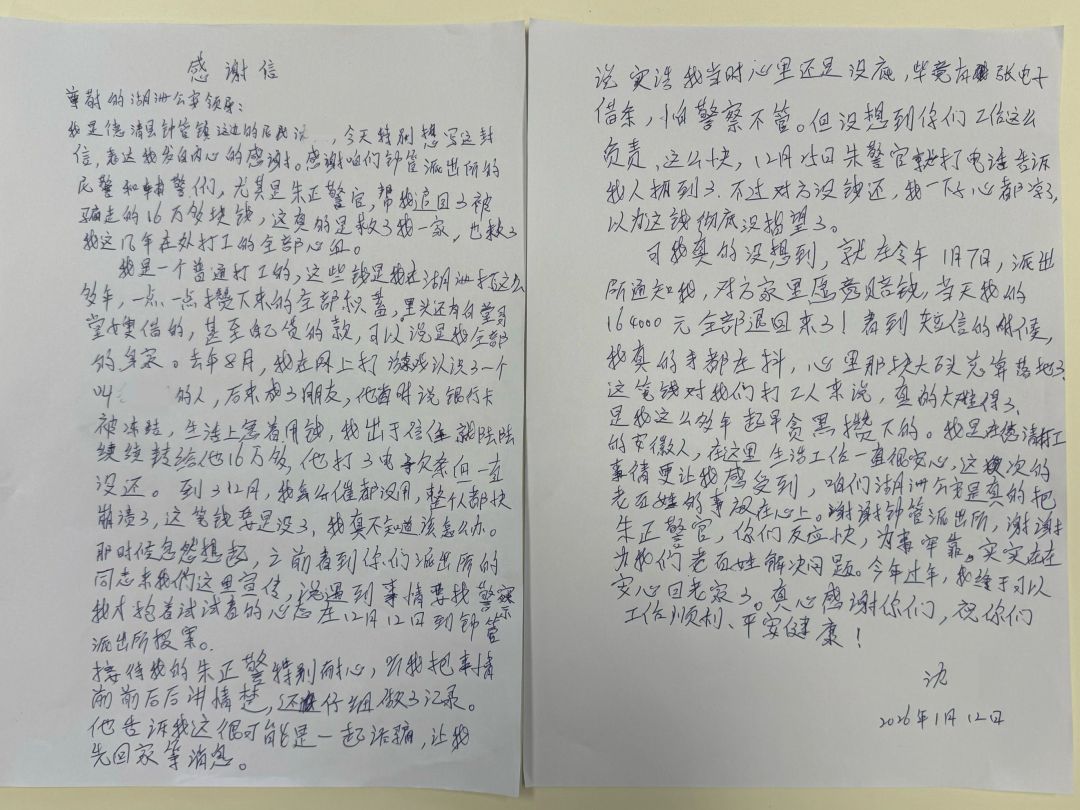 感谢信
尊敬的湖州公安领导：
我是德清县钟管镇这边的居民沈　　，今天特别想写这封
信，表达我发自内心的感谢。感谢咱们钟管派出所的
民警和辅警们，尤其是朱正警官，帮我追回了被
骗走的16万多块钱，这真的是救了我一家，也救了
我这几年在外打工的全部心血。
我是一个普通打工的，这些钱是我在湖州打这么
多年，一点一点攒下来的全部积蓄，里头还有向堂哥
堂嫂借的，甚至配货的款，可以说是我全部
的身家。去年8月，我在网上打游戏认识了一个
叫　　的人，后来成了朋友，他有时说银行卡
被冻结，生活上急着用钱，我出于信任就陆陆
续续转给他16万多，他打了电子欠条但一直
没还。到了12月，我怎么催都没用，整个人都快
崩溃了，这笔钱要是没了，我真不知道该怎么办。
那时候忽然想起，之前看到你们派出所的
同志来我们这里宣传，说遇到事情要找警察
我才抱着试试看的心态在12月12日到钟管
派出所报案。
接待我的朱正警特别耐心，听我把事情
前前后后讲清楚，还仔细做了记录。
他告诉我这很可能是一起诈骗，让我
先回家等消息。
说实话我当时心里还是没底，毕竟有张电子
借条，怕警察不管。但没想到你们工作这么
负责，这么快，12月25日朱警官就打电话告诉
我人抓到了，不过对方没钱还，我一下子心都凉了，
以为这钱彻底没指望了。
可我真的没想到，就在今年1月7日，派出
所通知我，对方家里愿意赔钱，当天我的
164000元全部退回来了！看到短信的时候，
我真的手都在抖，心里那块大石头总算落地了。
这笔钱对我们打工人来说，真的太难得了，
是我这么多年起早贪黑攒下的。我是在德清打工
的安徽人，在这里生活工作一直很安心，这次的
事情更让我感受到，咱们湖州公安是真的把
老百姓的事放在心上。谢谢钟管派出所，谢谢
朱正警官，你们反应快，为事牢靠，实实在在
为我们老百姓解决问题。今年过年，我终于可以
安心回老家了。真心感谢你们，祝你们
工作顺利、平安健康！
沈
2026年1月12日